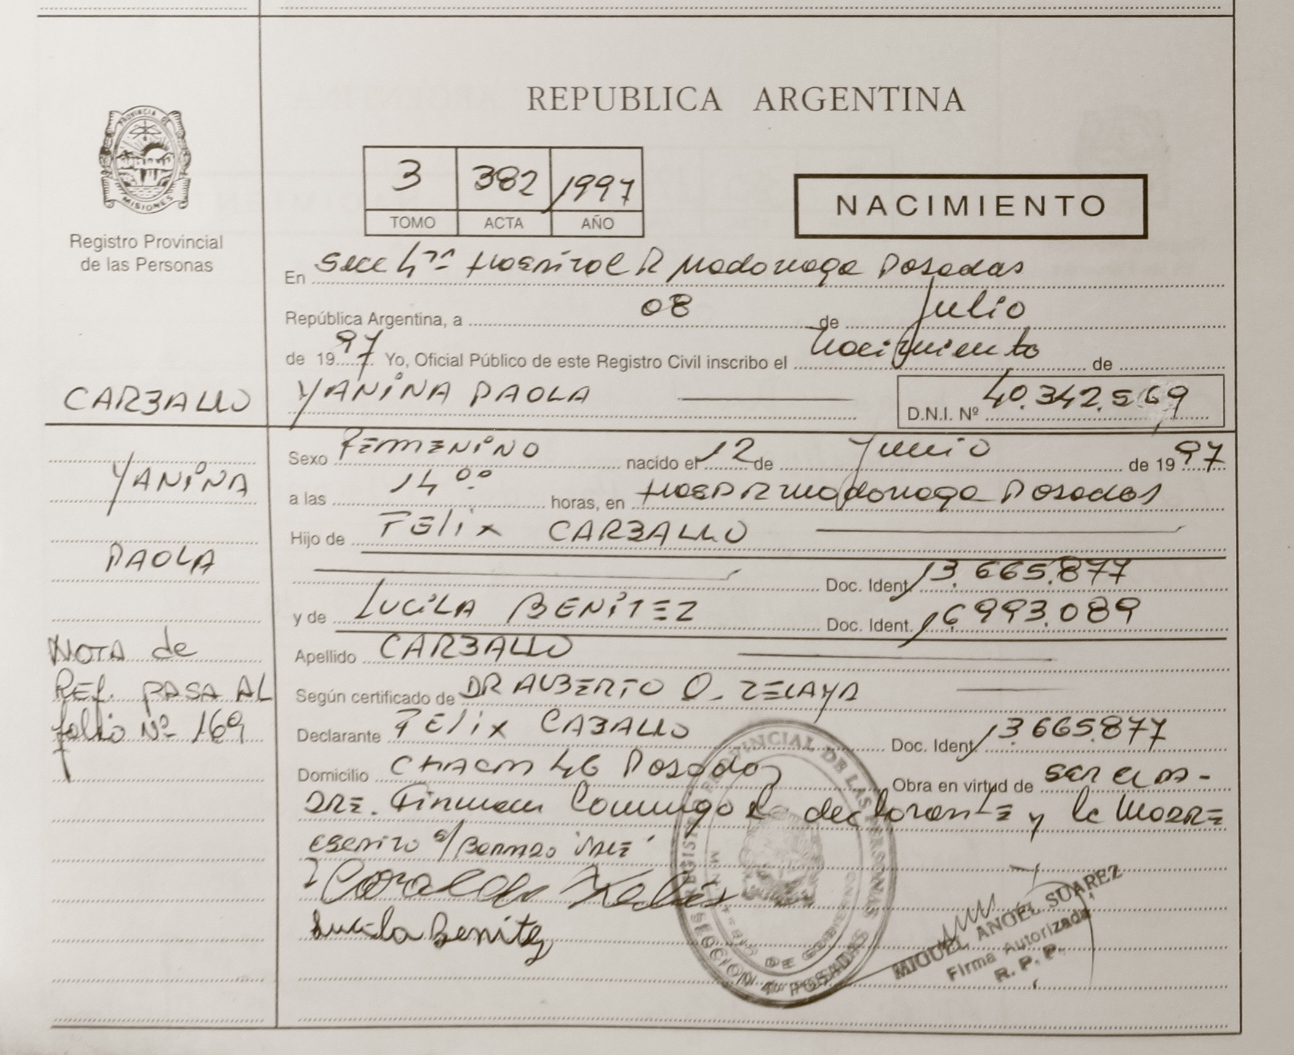 REPUBLICA ARGENTINA
PROVINCIA DE
MISIONES
Registro Provincial
de las Personas
3 382 1997
TOMO ACTA AÑO
NACIMIENTO
En Secc 4ta Hospital R Madariaga Posadas
República Argentina, a 08 de Julio
de 1997 Yo, Oficial Público de este Registro Civil inscribo el nacimiento de
CARBALLO YANINA PAOLA D.N.I. Nº 40.342.569
Sexo FEMENINO nacido el 12 de Junio de 1997
YANINA
a las 14 00 horas, en Hosp R Madariaga Posadas
Hijo de FELIX CARBALLO
PAOLA
Doc. Ident. 13.665.877
y de LUCILA BENITEZ Doc. Ident. 16993.089
Apellido CARBALLO
NOTA de
REF. PASA AL
folio Nº 169
Según certificado de DR ALBERTO O. ZELAYA
Declarante FELIX CABALLO Doc. Ident. 13665.877
Domicilio CHACRA 46 Posadas Obra en virtud de ser el PA-
DRE. Firman Conmigo el declarante y la MADRE
ESCRITO s/BORRADO
Lucila Benitez
REGISTRO PROVINCIAL DE LAS PERSONAS
SECCION 4ta POSADAS
MIGUEL ANGEL SUAREZ
Firma Autorizada
R. P. P.